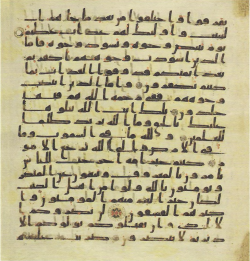 تفرقوا واختلفوا من بعد ما جاهم ا
لبينت واولئك لهم عذاب عظيم
يوم تبيض وجوه وتسود وجوه فاما
الذين اسودت وجوههم اكفرتم
بعد ايمنكم فذوقوا العذاب بما
كنتم تكفرون واما الذين ابيضت
وجوههم ففي رحمة الله هم فيها
خلدون تلك ايت الله نتلوها
عليك بالحق وما الله يريد ظلما
للعلمين ولله ما في السموت وما
في الارض والى الله ترجع الامو
ر كنتم خير امة اخرجت للناس
تامرون بالمعروف وتنهون عن المنكر
وتومنون بالله ولو امن اهل الكتب
لكان خيرا لهم منهم المومنون وا
كثرهم الفسقون لن يضروكم
الا اذى وان يقتلوكم يولوكم الاد
بار ثم لا ينصرون ضربت عليهم